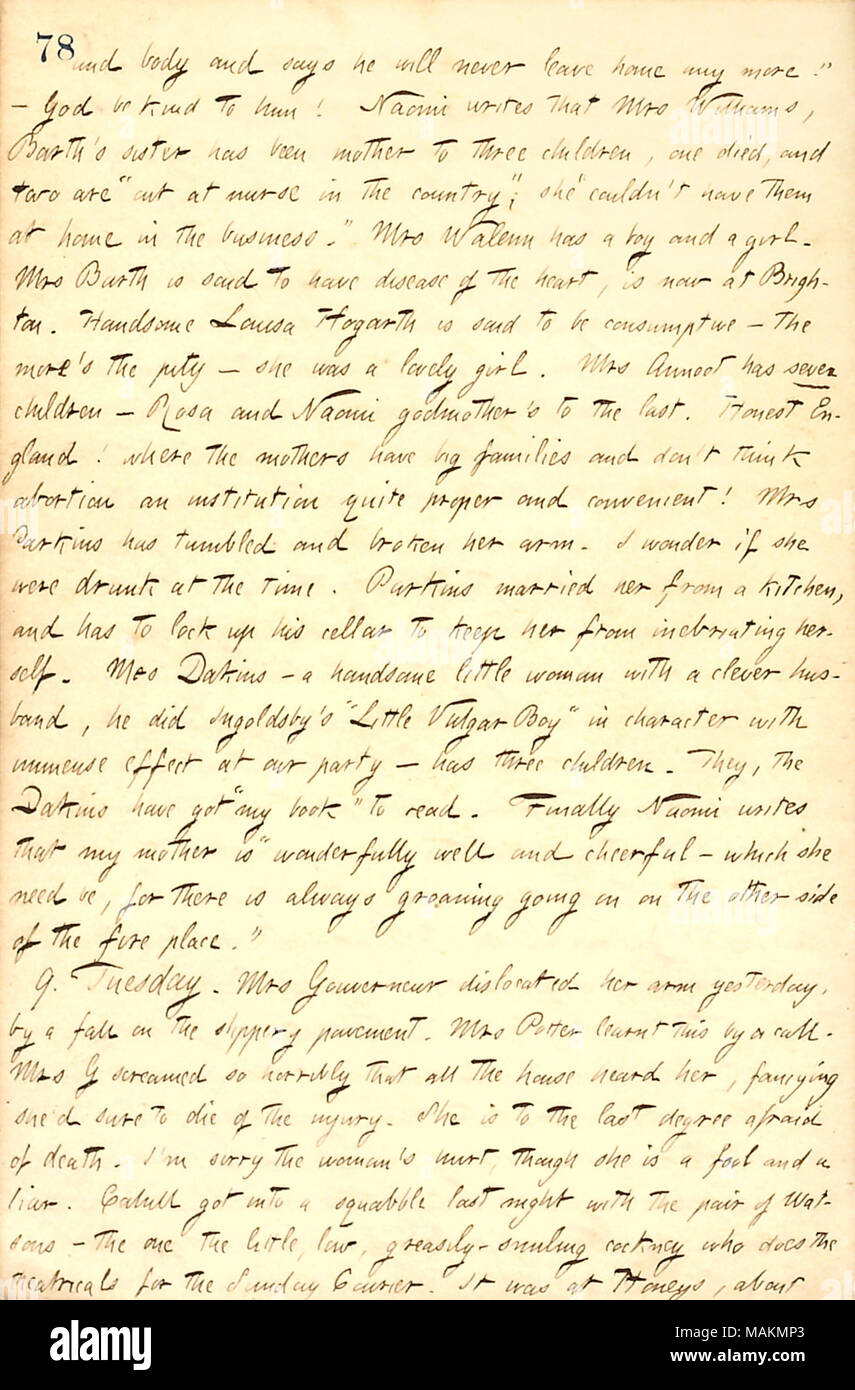 78
and body and says he will never leave home any more!"
— God be kind to him! Naomi writes that Mrs Williams,
Barth's sister has been mother to three children, one died, and
two are "out at nurse in the country"; she "couldn't have them
at home in the business." Mrs Walenn has a boy and a girl.
Mrs Barth is said to have disease of the heart, is now at Brigh-
ton. Handsome Louisa Hogarth is said to be consumptive — the
more's the pity — she was a lovely girl. Mrs Annoot has seven
children — Rosa and Naomi godmother's to the last. Honest En-
gland! where the mothers have big families and don't think
abortion an institution quite proper and convenient! Mrs
Parkins has tumbled and broken her arm. I wonder if she
were drunk at the time. Parkins married her from a kitchen,
and has to lock up his cellar to keep her from inebriating her-
self. Mrs Dakins — a handsome little woman with a clever hus-
band, he did Ingoldsby's "Little Vulgar Boy" in character with
immense effect at our party — has three children. They, the
Dakins have got "my book" to read. Finally Naomi writes
that my mother is "wonderfully well and cheerful — which she
need be, for there is always groaning going on on the other side
of the fire place."
9. Tuesday. Mrs Gouverneur dislocated her arm yesterday,
by a fall on the slippery pavement. Mrs Potter learnt this by a call.
Mrs G screamed so horribly that all the house heard her, fancying
she'd sure to die of the injury. She is to the last degree afraid
of death. I'm sorry the woman's hurt, though she is a fool and a
liar. Cahill got into a squabble last night with the pair of Wat-
sons — the one the little, low, greasily-smiling cockney who does the
theatricals for the Sunday Courier. It was at Honeys, about
alamy
Image ID: MAKMP3
www.alamy.com